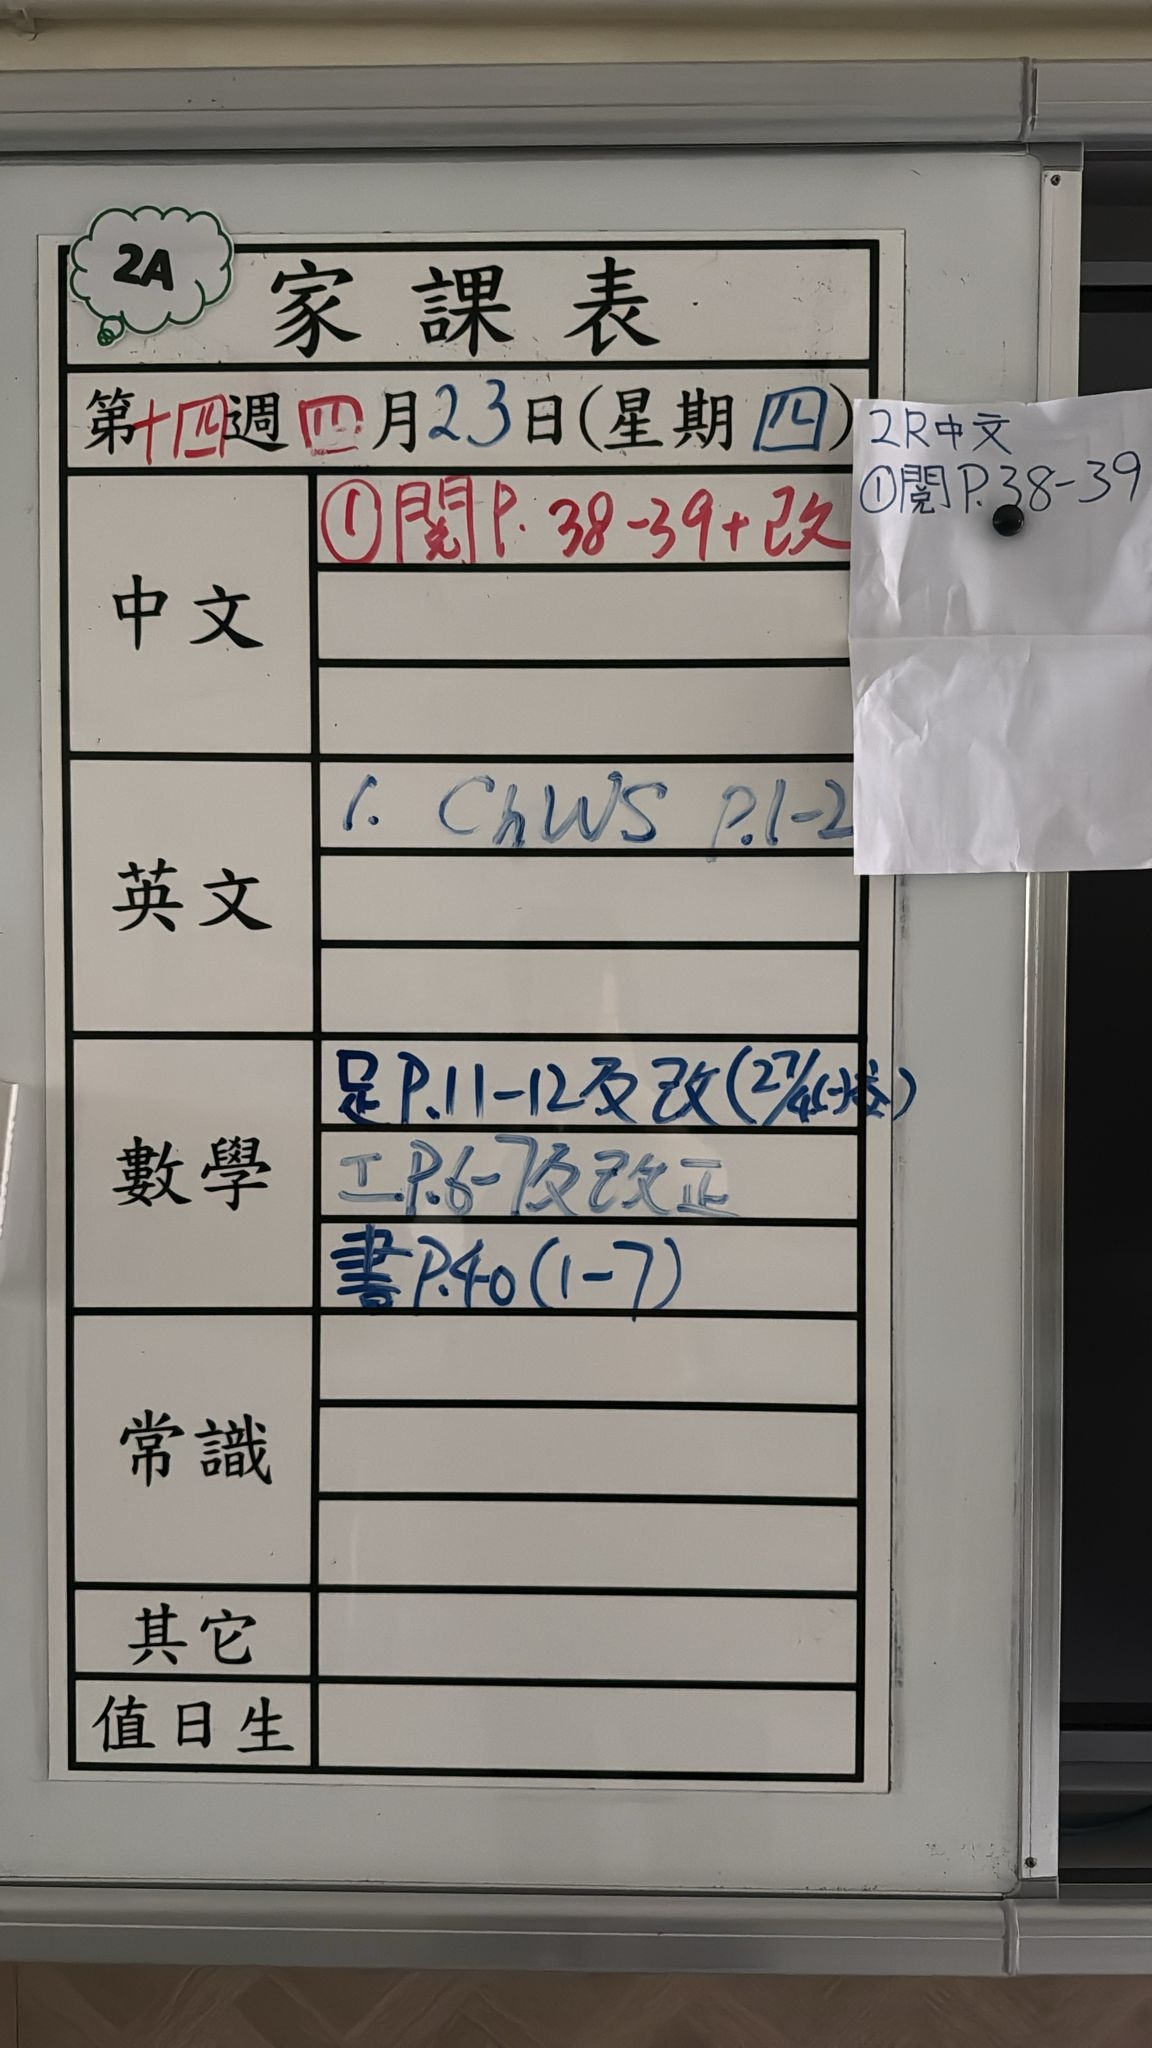 2A
家課表
第十四週四月23日(星期四)
中文
①閱P.38-39+改
英文
1. ChWS P.1-2
數學
足P.11-12及改(27/4(一)交)
工P.6-7及改正
書P.40(1-7)
常識
其它
值日生
2R中文
①閱P.38-39